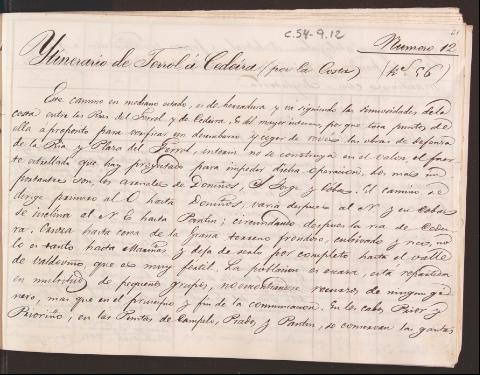 21
C.54-9.12
Numero 12
Ytinerario de Ferrol á Cedeira (por la Costa) (Kil. 56)
Este camino en mediano estado, es de herradura y va siguiendo las sinuosidades de la
costa entre las Rias del Ferrol y de Cedeira. Es del mayor interes, por que toca puntos de
ella a proposito para verificar un desembarco y coger de revés las obras de defensa
de la Ria y Plaza del Ferrol, interin no se construya en el valon, el fuer-
te estrellado que hay proyectado para impedir dicha operacion. Lo mas im-
portante son, los arenales de Doniños, S. Jorge y Cobas. El camino se
dirige primero al O hasta Doniños, varia despues al N y en Cobas
se inclina al N E hasta Pantin; circundando despues la ria de Cedei-
ra. Cruza hasta cerca de la Graña terreno frondoso, cultivado y rico, no
lo es tanto hasta y deja de serlo por completo hasta el valle
de Valdoviño, que es muy fertil. La poblacion es escasa, está repartida
en multitud de pequeños grupos, no encontrandose recursos de ningun gé-
nero, mas que en el principio y fin de la comunicacion. En los cabos Prior y
Prioriño, en las Puntas de Campelo, Prados y Pantin, se conservan las garitas